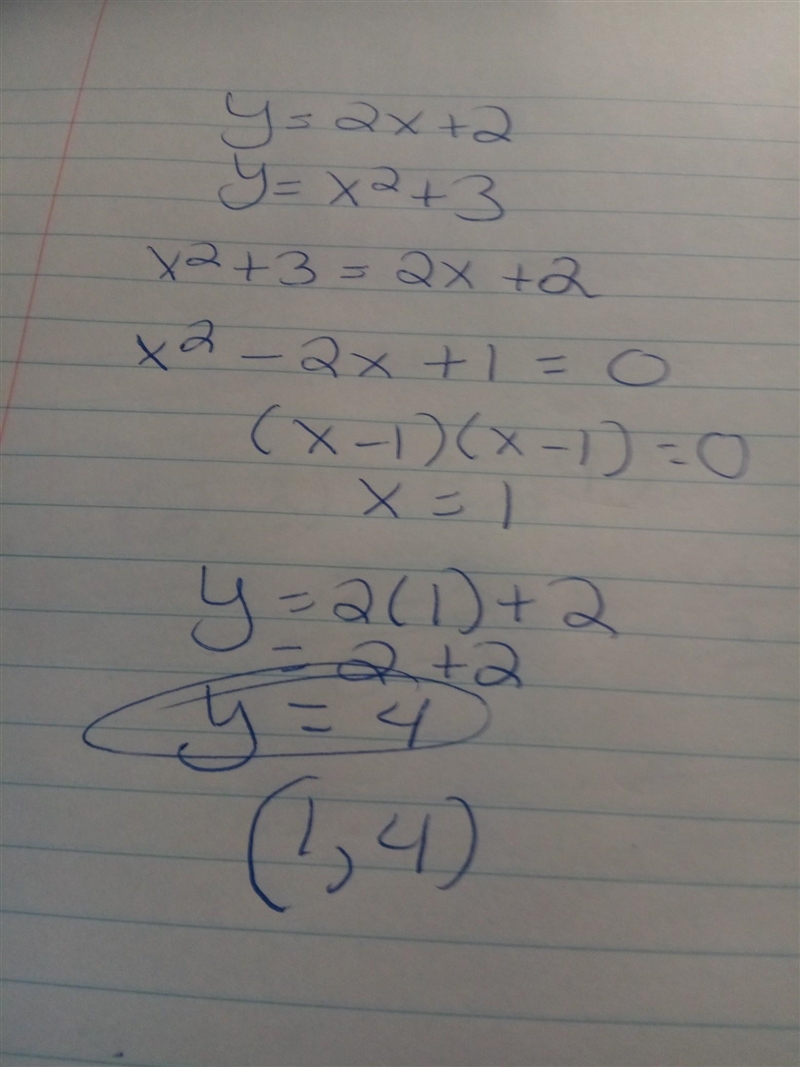 y = 2x + 2
y = x² + 3
x² + 3 = 2x + 2
x² - 2x + 1 = 0
(x - 1)(x - 1) = 0
x = 1
y = 2(1) + 2
= 2 + 2
y = 4
(1, 4)